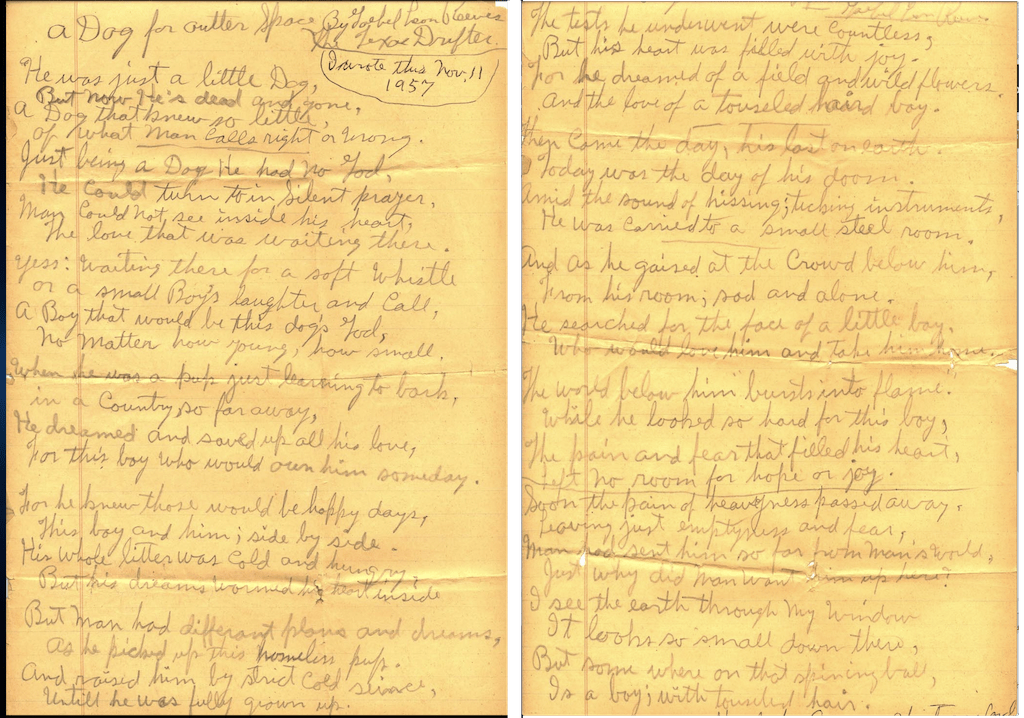 a Dog for outter Space
By Goebel Leon Reeves
The Texas Drifter.
(I wrote this Nov. 11
1957
He was just a little Dog,
But now He's dead and gone,
A Dog that knew so little,
of what Man Calls right or Wrong.
Just being a Dog He had No God,
He Could turn to in Silent prayer,
Man Could Not see inside his heart,
The love that was waiting there.
Yess: Waiting there for a soft Whistle
or a small Boy's laughter and Call,
A Boy that would be this dog's God,
No Matter how young, how small.
When he was a pup just learning to bark,
in a Country, so far away,
He dreamed and saved up all his love,
For this boy who would own him someday.
For he knew those would be happy days,
This boy and him; side by side.
His whole litter was Cold and hungry,
But his dreams warmed his heart inside
But Man had different plans and dreams,
As he picked up this homeless pup.
And raised him by strict Cold sience,
Untill he was fully grown up.
The tests he underwent were Countless;
But his heart was filled with joy.
For he dreamed of a field and wild flowers.
And the love of a touseled haird boy.
Then Came the day, his last on earth.
Today was the day of his doom.
Amid the sound of hissing; ticking instruments,
He was Carried to a small steel room.
And as he gaised at the Crowd below him,
From his room; sad and alone.
He searched for the face of a little boy.
Who would love him and take him home.
The world below him bursts into flame.
While he looked so hard for this boy,
The pain and fear that filled his heart,
Left No room for hope or joy.
Soon the pain of heavyness passed away.
Leaving just emptyness and fear,
Man had sent him so far from Man's World,
Just why did Man want him up here?
I see the earth through My Window
It looks so small down there,
But some where on that spining ball,
Is a boy; with touseled hair.